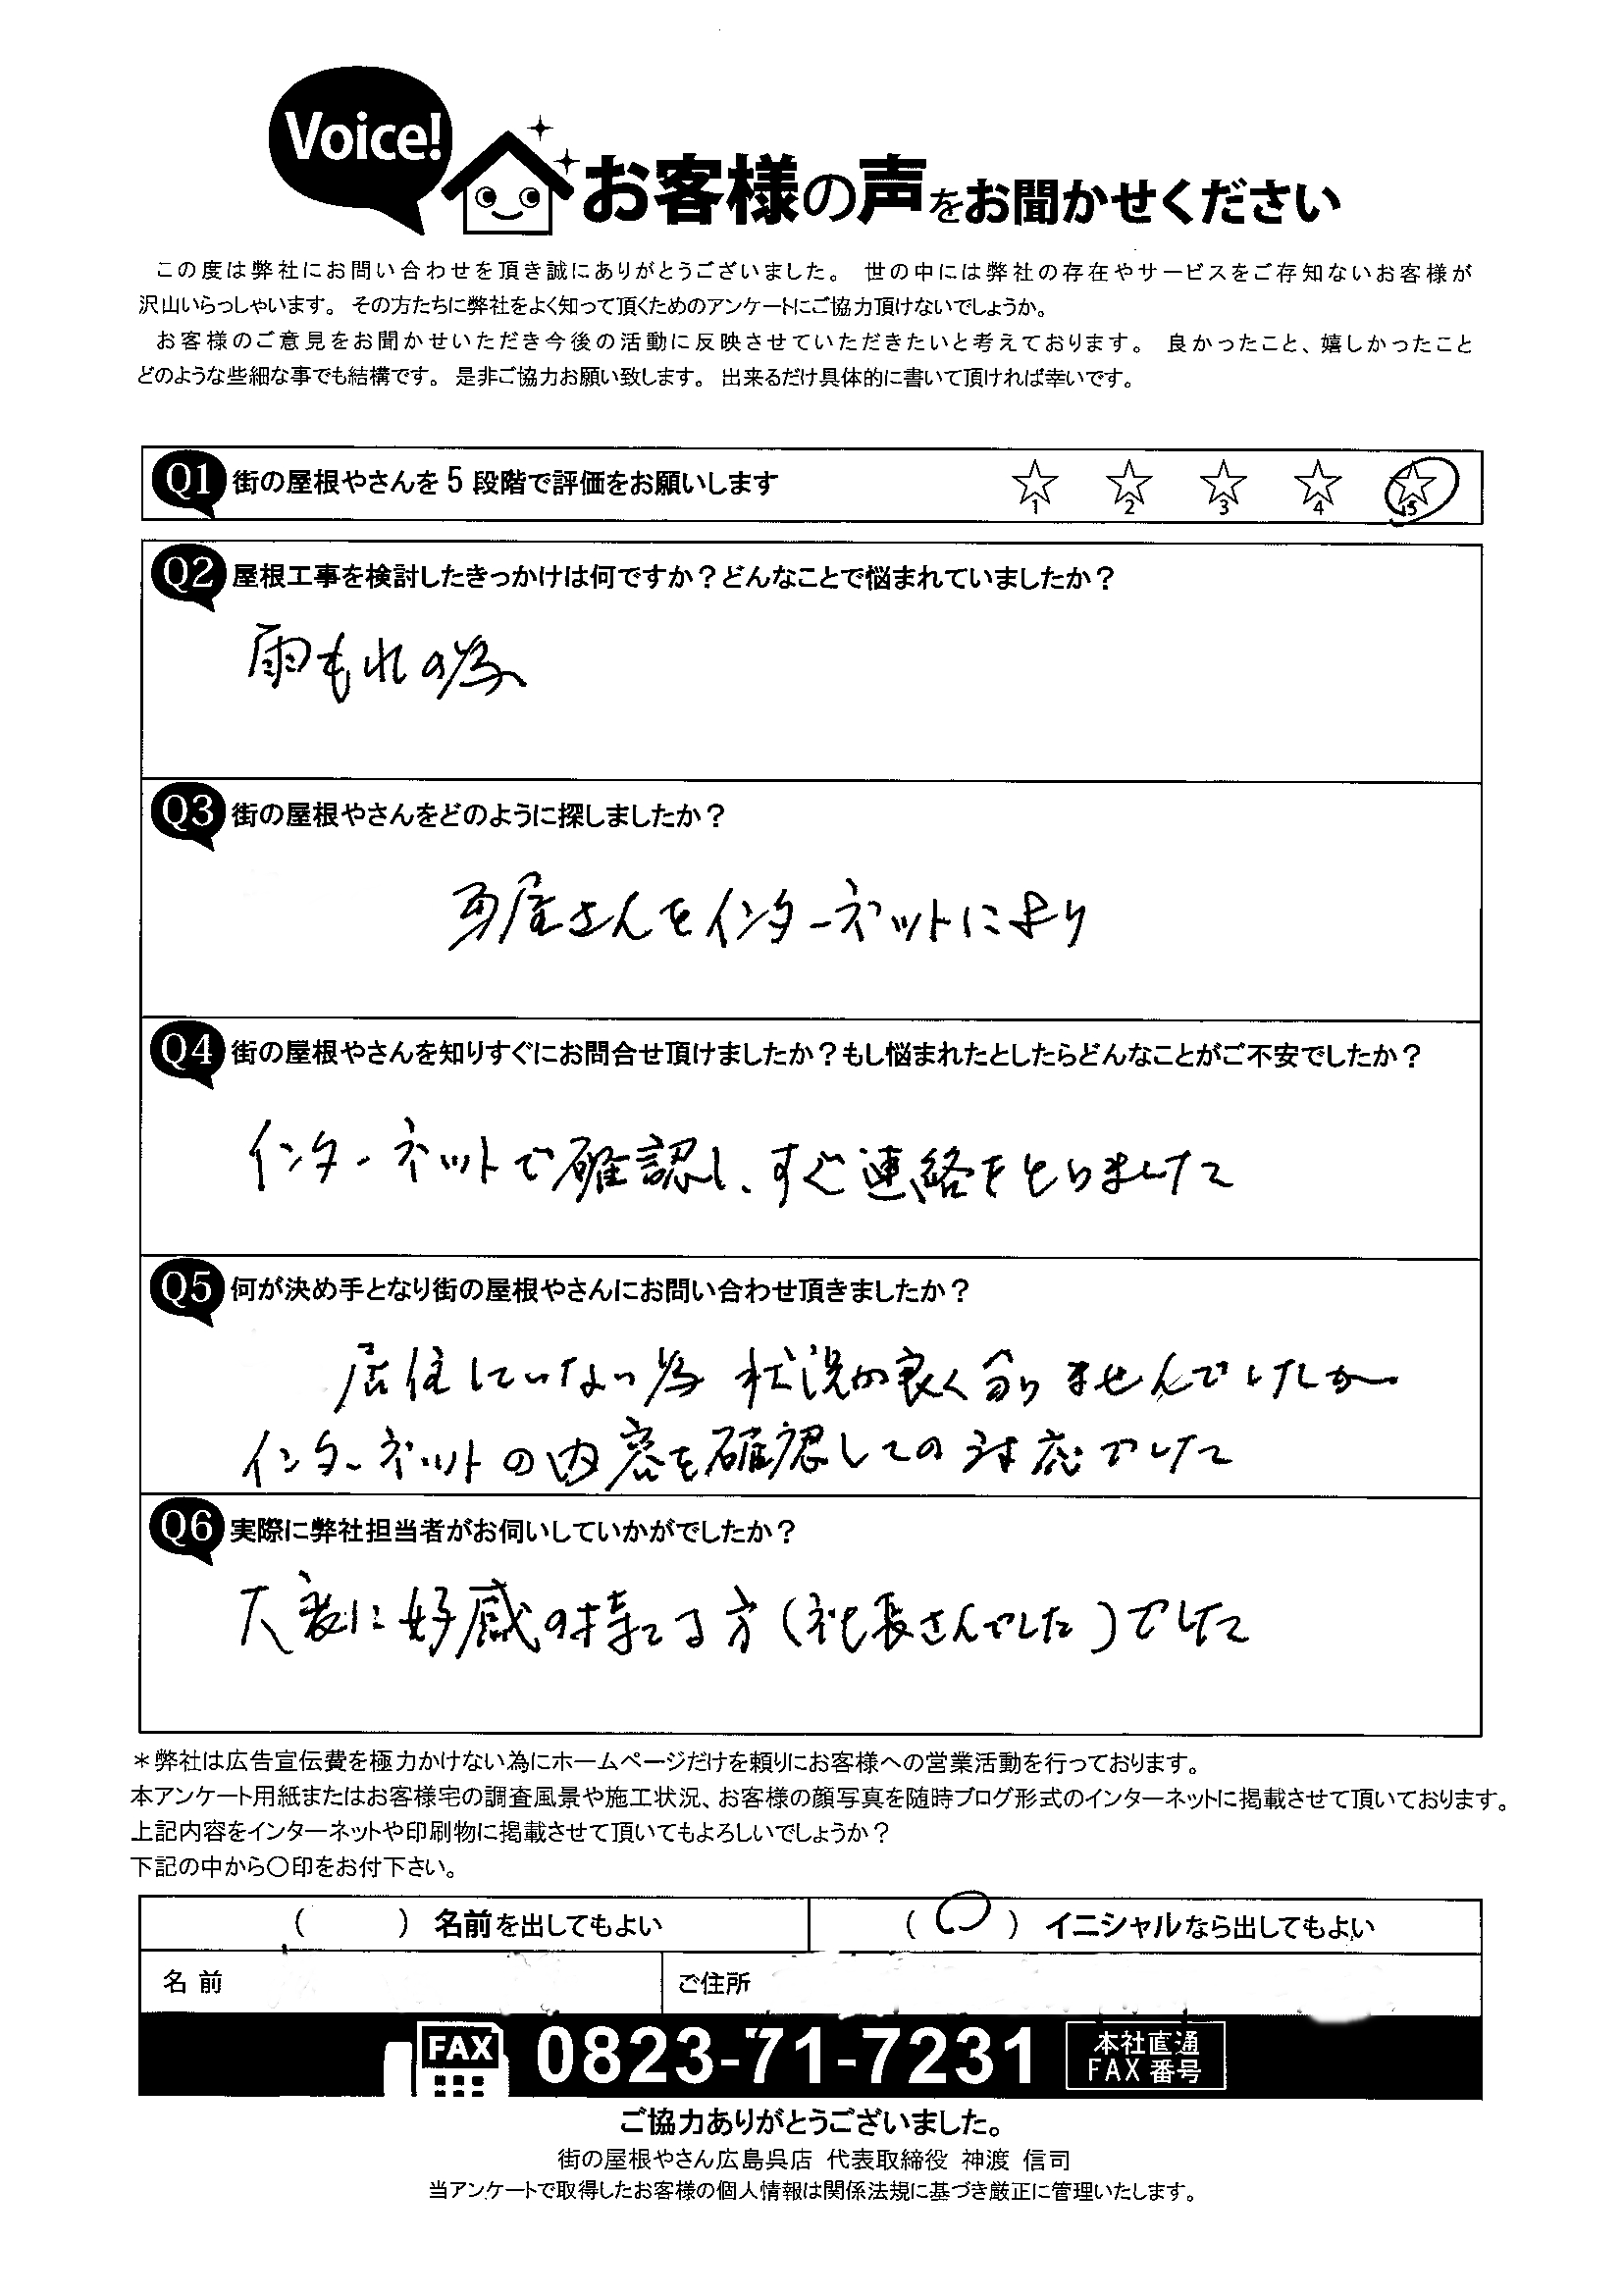 Voice!
お客様の声をお聞かせください
この度は弊社にお問い合わせを頂き誠にありがとうございました。 世の中には弊社の存在やサービスをご存知ないお客様が
沢山いらっしゃいます。 その方たちに弊社をよく知って頂くためのアンケートにご協力頂けないでしょうか。
お客様のご意見をお聞かせいただき今後の活動に反映させていただきたいと考えております。 良かったこと、嬉しかったこと
どのような些細な事でも結構です。 是非ご協力お願い致します。 出来るだけ具体的に書いて頂ければ幸いです。
Q1 街の屋根やさんを5段階で評価をお願いします 1 2 3 4 5
Q2 屋根工事を検討したきっかけは何ですか？どんなことで悩まれていましたか？
雨もれの為
Q3 街の屋根やさんをどのように探しましたか？
瓦屋さんをインターネットにより
Q4 街の屋根やさんを知りすぐにお問合せ頂けましたか？もし悩まれたとしたらどんなことがご不安でしたか？
インターネットで確認し、すぐ連絡をとりました
Q5 何が決め手となり街の屋根やさんにお問い合わせ頂きましたか？
居住していない為 状況が良く分りませんでしたが
インターネットの内容を確認しての対応でした
Q6 実際に弊社担当者がお伺いしていかがでしたか？
大変に好感の持てる方（社長さんでした）でした
＊弊社は広告宣伝費を極力かけない為にホームページだけを頼りにお客様への営業活動を行っております。
本アンケート用紙またはお客様宅の調査風景や施工状況、お客様の顔写真を随時ブログ形式のインターネットに掲載させて頂いております。
上記内容をインターネットや印刷物に掲載させて頂いてもよろしいでしょうか？
下記の中から〇印をお付下さい。
（　　）名前を出してもよい （○）イニシャルなら出してもよい
名前 ご住所
FAX 0823-71-7231 本社直通
FAX番号
ご協力ありがとうございました。
街の屋根やさん広島呉店 代表取締役 神渡 信司
当アンケートで取得したお客様の個人情報は関係法規に基づき厳正に管理いたします。